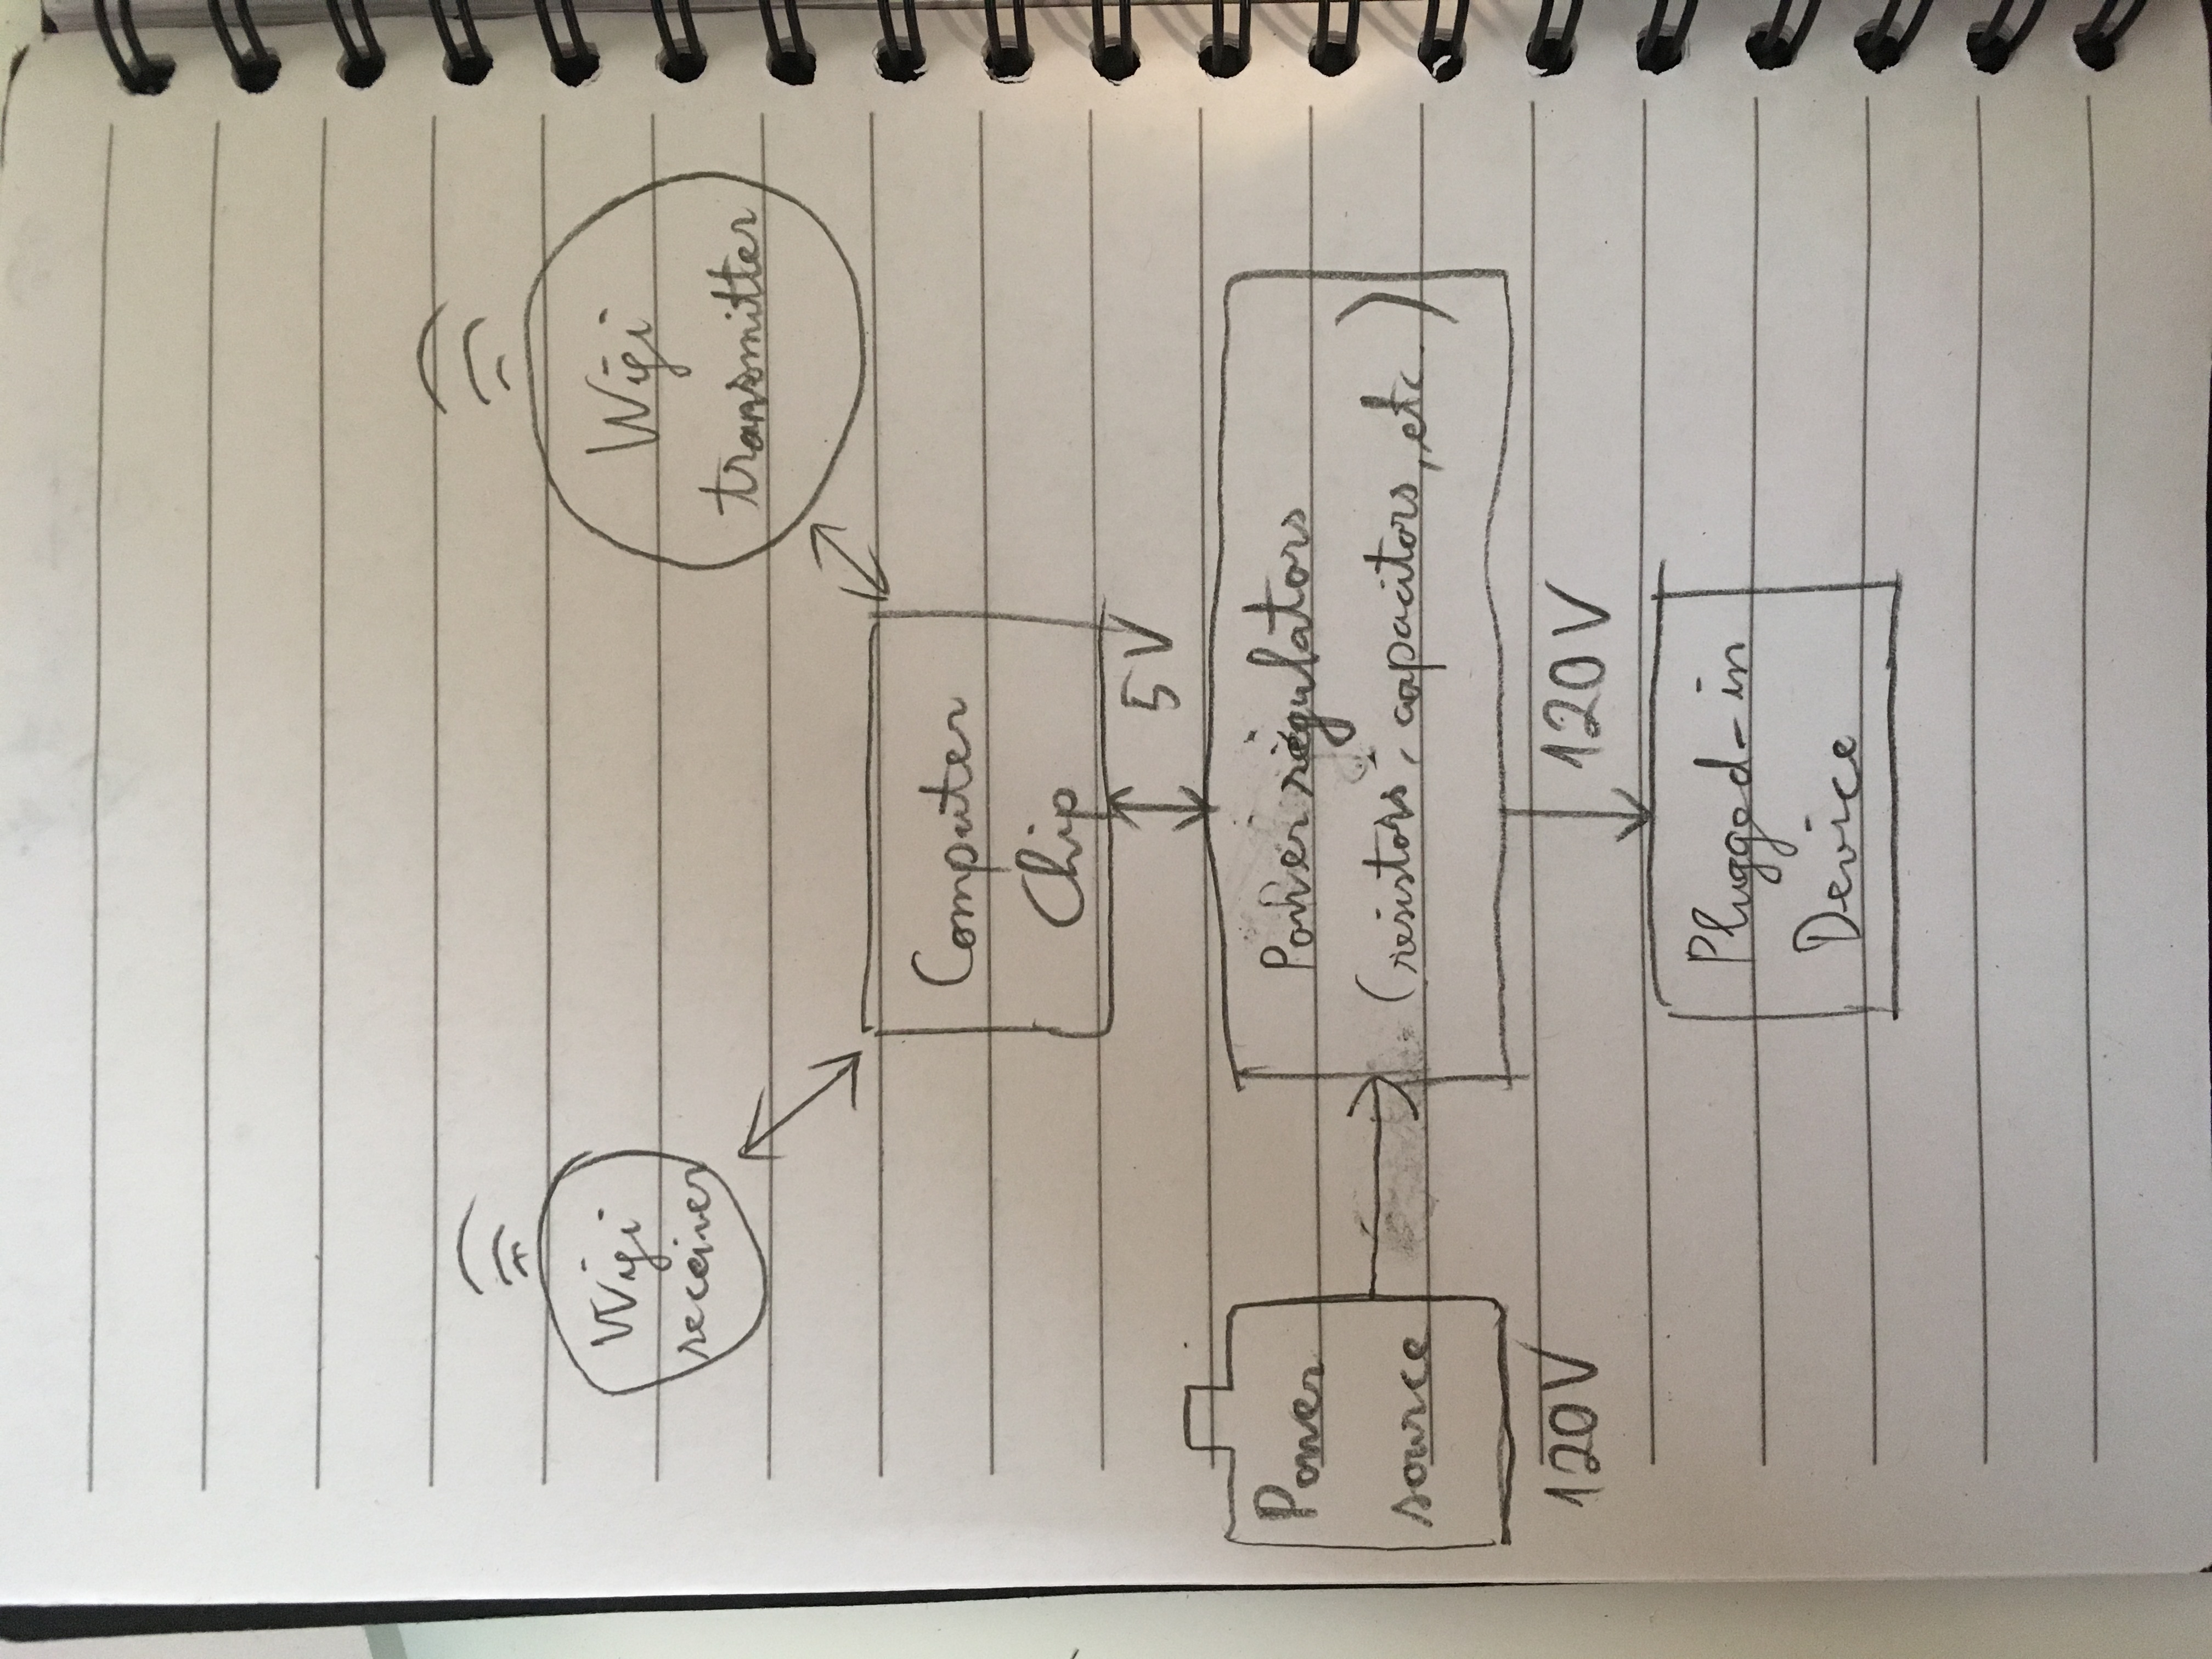 Wifi
receiver
Wifi
transmitter
Computer
Chip
5V
Power
source
120V
Power regulators
(resistors, capacitors, etc.)
120V
Plugged-in
Device